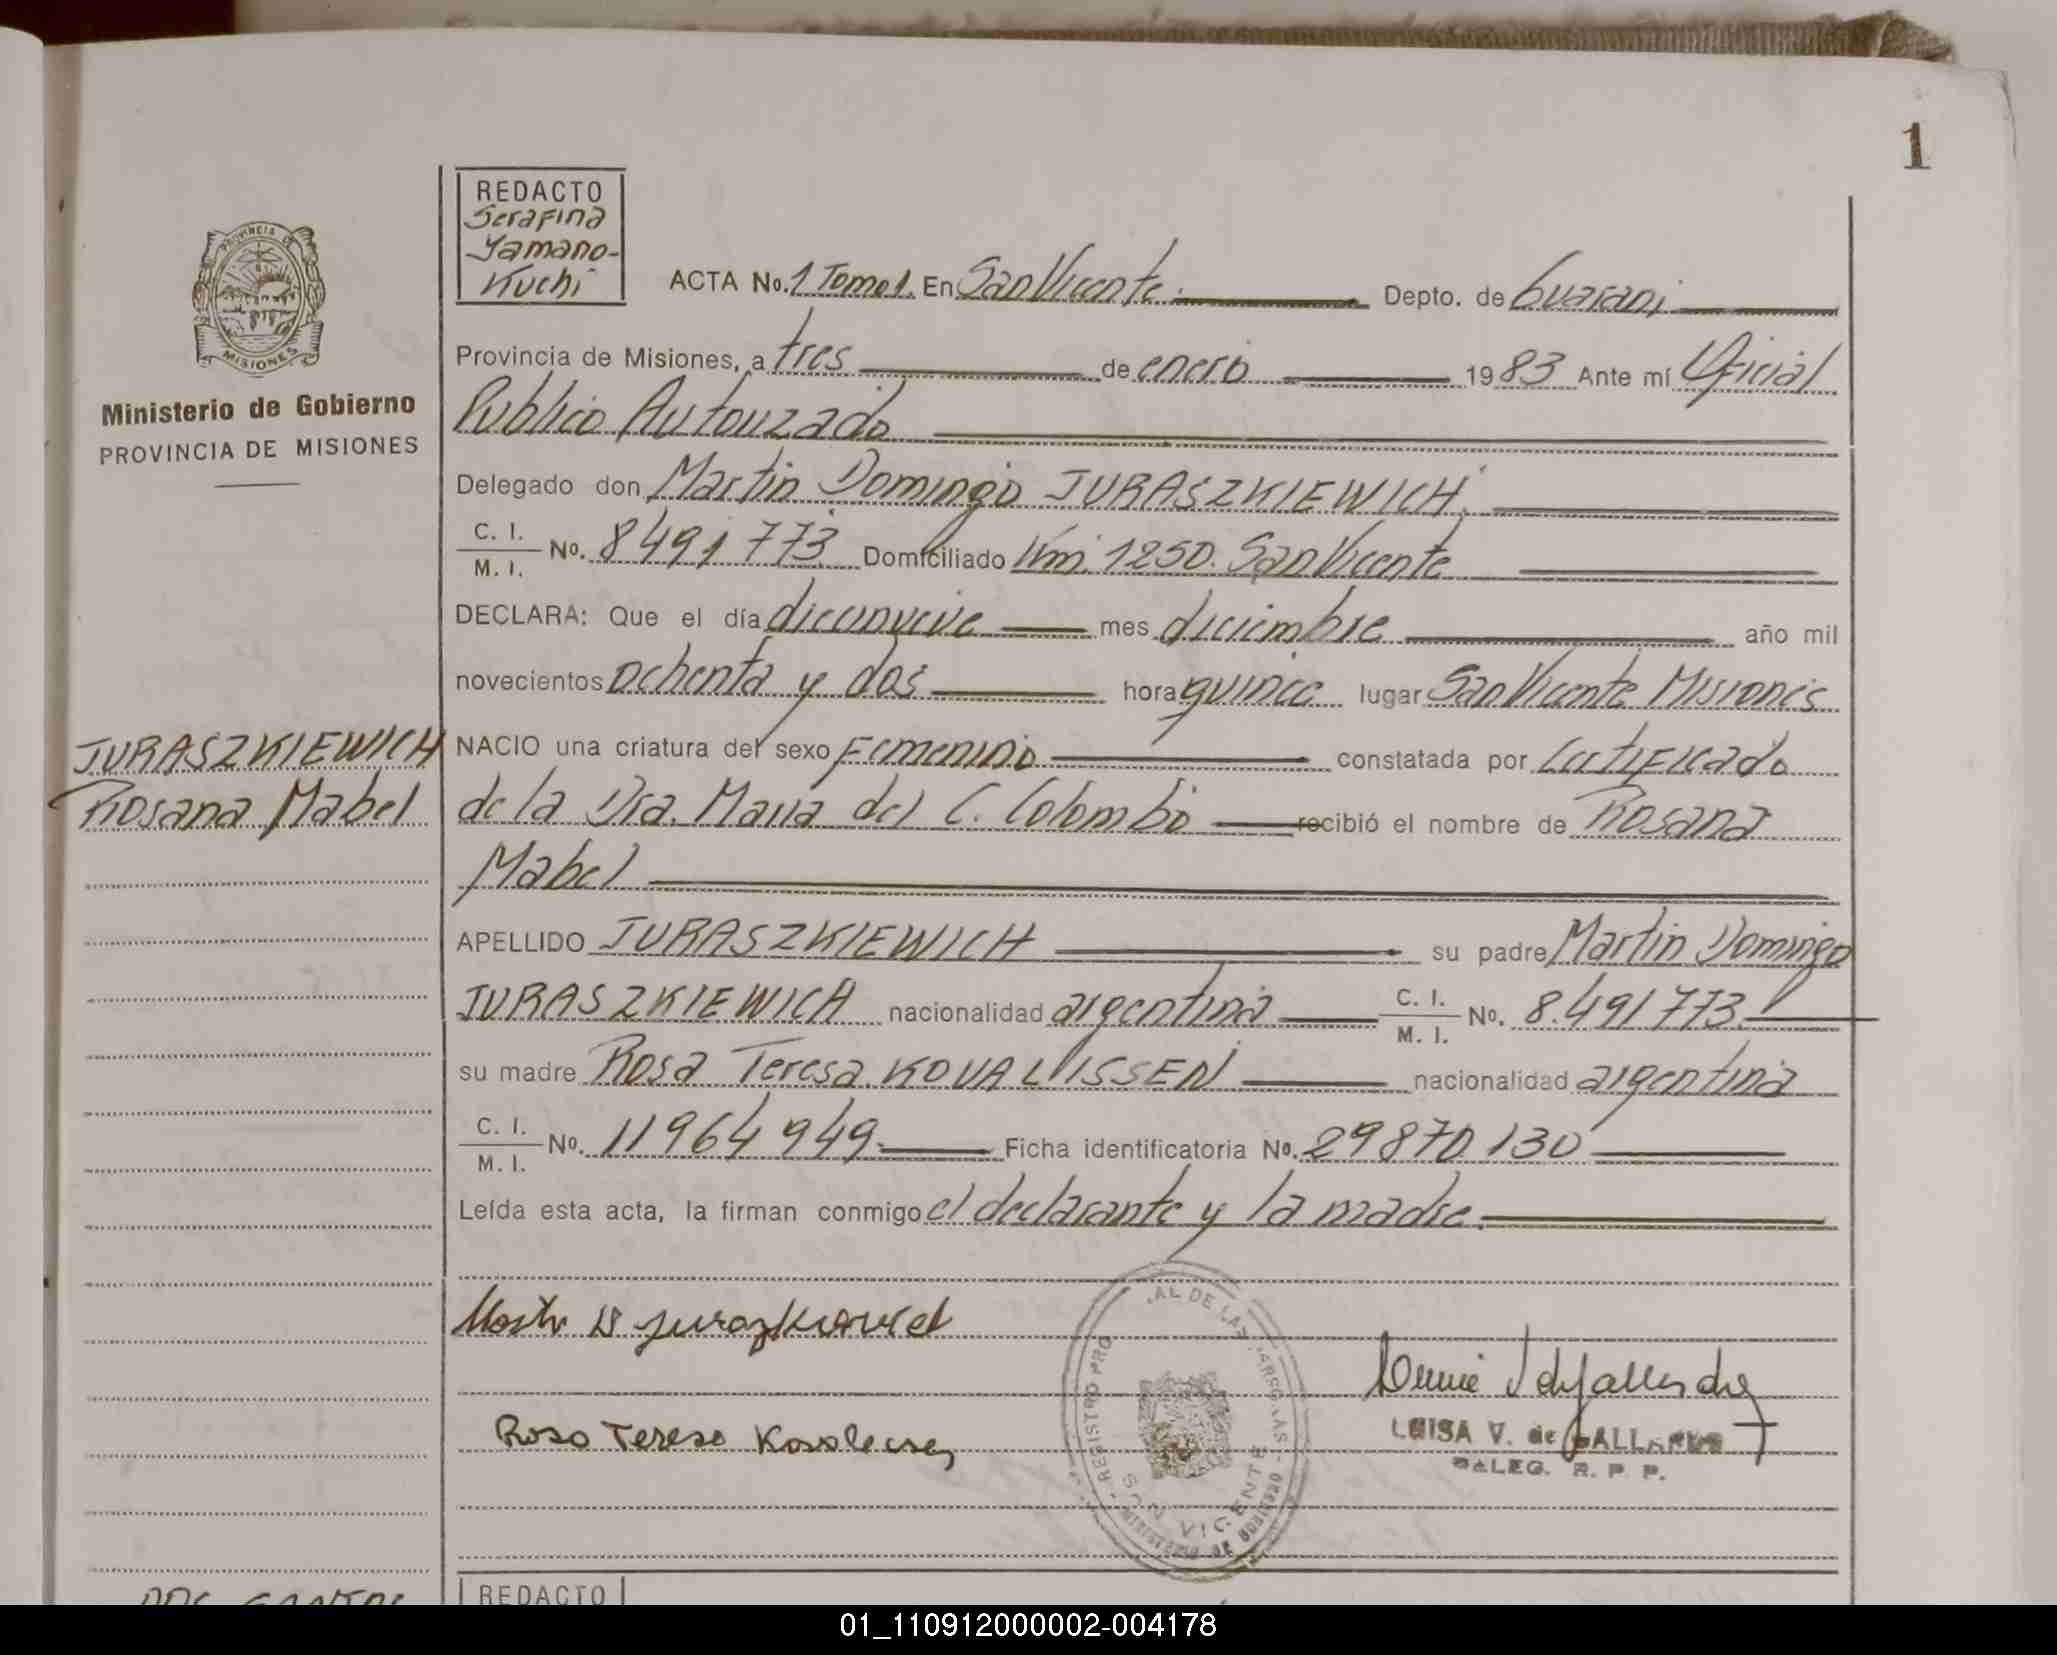 1
REDACTO
Serafina
Yamano-
Kuchi
PROVINCIA DE
MISIONES
Ministerio de Gobierno
PROVINCIA DE MISIONES
ACTA No. 1 Tomo 1. En San Vicente. Depto. de Guarani
Provincia de Misiones, a tres de enero 1983 Ante mí Oficial
Publico Autorizado
Delegado don Martin Domingo JURASZKIEWICH.
C. I. / M. I. No. 8491773 Domiciliado Km. 1250. San Vicente
DECLARA: Que el día diecinueve mes diciembre año mil
novecientos ochenta y dos hora quince lugar San Vicente Misiones
JURASZKIEWICH
Rosana Mabel
NACIO una criatura del sexo Femenino constatada por Certificado
de la Dra. Maria del C. Colombo recibió el nombre de Rosana
Mabel
APELLIDO JURASZKIEWICH su padre Martin Domingo
JURASZKIEWICH nacionalidad argentina C. I. / M. I. No. 8.491773.
su madre Rosa Teresa KOVALISSEN nacionalidad argentina
C. I. / M. I. No. 11964949. Ficha identificatoria No. 29870130
Leída esta acta, la firman conmigo el declarante y la madre.
REGISTRO PRO AL DE LAS
SAN VICENTE
Rosa Teresa
LUISA V. de GALLARDO
DALEG. R. P. P.
REDACTO
01_110912000002-004178